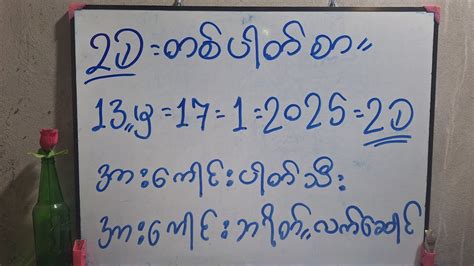 2D=တစ်ပါတ်စာ။
13,,မှ=17=1=2025=2D
အားကောင်းပါတ်သီး
အားကောင်းဘရိတ်။လက်ဆောင်